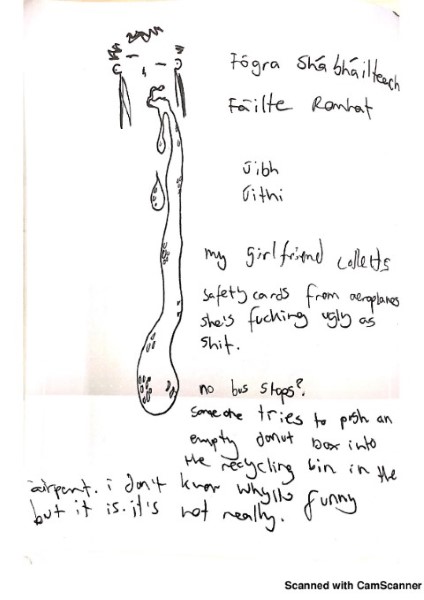 Fógra Shábháilteach
Fáilte Romhat
Uibh
Uithi
my girlfriend collects
safety cards from aeroplanes
she's fucking ugly as
shit.
no bus stops?
someone tries to push an
empty donut box into
the recycling bin in the
airport. i don't know why its funny
but it is. it's not really.
Scanned with CamScanner